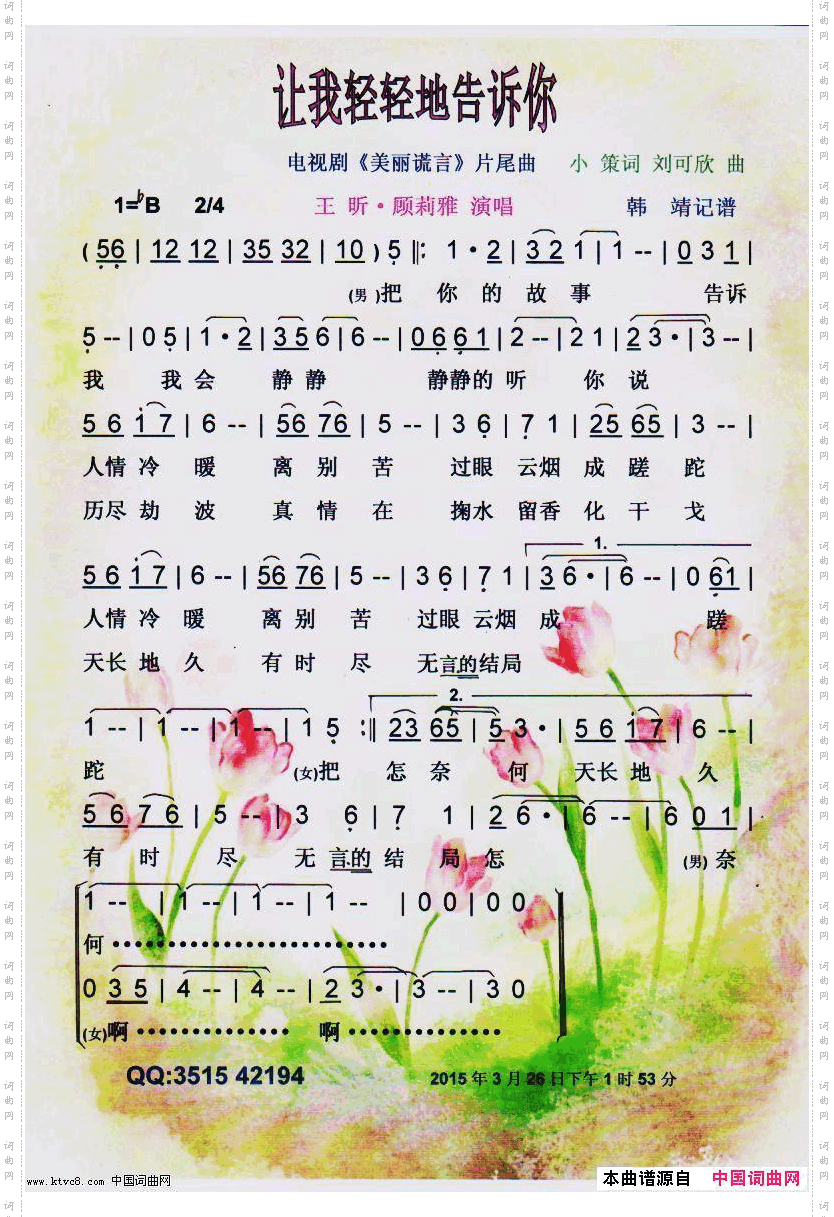 让我轻轻地告诉你
电视剧《美丽谎言》片尾曲 小 策词 刘可欣 曲
1=♭B 2/4 王 昕·顾莉雅 演唱 韩 靖记谱
( 56 | 12 12 | 35 32 | 10 ) 5 ‖: 1·2 | 32 1 | 1 -- | 0 3 1 |
(男)把 你 的 故 事 告诉
5 -- | 0 5 | 1·2 | 35 6 | 6 -- | 0 6 6 1 | 2 -- | 2 1 | 2 3· | 3 -- |
我 我 会 静 静 静静的 听 你 说
5 6 1 7 | 6 -- | 56 76 | 5 -- | 3 6 | 7 1 | 25 65 | 3 -- |
人情 冷 暖 离 别 苦 过眼 云烟 成 蹉 跎
历尽 劫 波 真 情 在 掬水 留香 化 干 戈
1.
5 6 1 7 | 6 -- | 56 76 | 5 -- | 3 6 | 7 1 | 3 6· | 6 -- | 0 61 |
人情 冷 暖 离 别 苦 过眼 云烟 成 蹉
天长 地 久 有 时 尽 无言的结局
2.
1 -- | 1 -- | 1 -- | 1 5 :‖ 23 65 | 5 3· | 5 6 1 7 | 6 -- |
跎 (女)把 怎 奈 何 天长 地 久
5 6 7 6 | 5 -- | 3 6 | 7 1 | 2 6· | 6 -- | 6 -- | 0 1 |
有 时 尽 无 言的 结 局 怎 (男)奈
1 -- | 1 -- | 1 -- | 1 -- | 0 0 | 0 0
何••••••••••••••••••••••••
0 3 5 | 4 -- | 4 -- | 2 3· | 3 -- | 3 0
(女)啊•••••••••••••• 啊••••••••••••••
QQ:3515 42194 2015 年 3 月 26 日下午 1 时 53 分
www.ktvc8.com 中国词曲网 本曲谱源自 中国词曲网